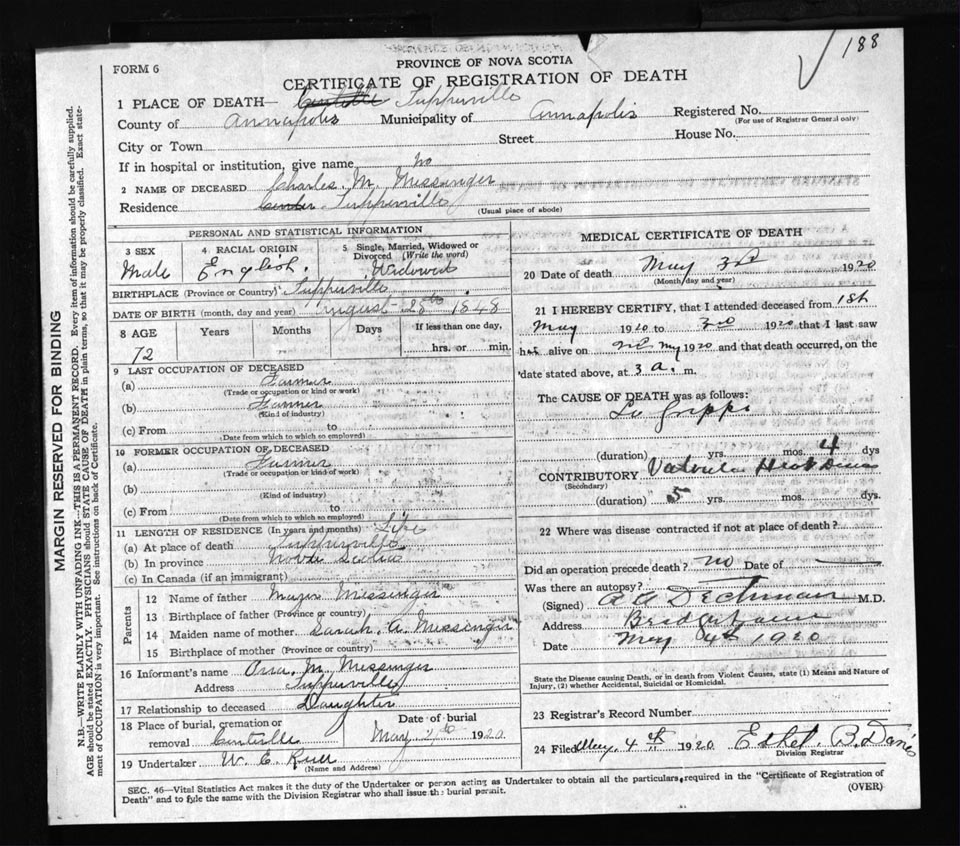 188
PROVINCE OF NOVA SCOTIA
FORM 6
CERTIFICATE OF REGISTRATION OF DEATH
1 PLACE OF DEATH— Tupperville
County of Annapolis Municipality of Annapolis Registered No.
(For use of Registrar General only)
City or Town Street House No.
If in hospital or institution, give name no
2 NAME OF DECEASED Charles. M. Messinger
Residence Tupperville
(Usual place of abode)
PERSONAL AND STATISTICAL INFORMATION
3 SEX 4. RACIAL ORIGIN 5 Single, Married, Widowed or
Divorced (Write the word)
Male English. Widowed
BIRTHPLACE (Province or Country) Tupperville
DATE OF BIRTH (month, day and year) August 28th 1848
8 AGE Years Months Days If less than one day,
72 hrs. or min.
9 LAST OCCUPATION OF DECEASED
(a) Farmer
(Trade or occupation or kind or work)
(b) Farmer
(Kind of industry)
(c) From to
(Date from which to which so employed)
10 FORMER OCCUPATION OF DECEASED
(a) Farmer
(Trade or occupation or kind of work)
(b)
(Kind of industry)
(c) From to
(Date from which to which so employed)
11 LENGTH OF RESIDENCE (In years and months) Life
(a) At place of death Tupperville
(b) In province Nova Scotia
(c) In Canada (if an immigrant)
Parents
12 Name of father Messinger
13 Birthplace of father (Province or country)
14 Maiden name of mother Sarah. A. Messinger
15 Birthplace of mother (Province or country)
16 Informant's name M. Messinger
Address Tupperville
17 Relationship to deceased Daughter
18 Place of burial, cremation or Date of burial
removal May 1920
19 Undertaker W. C.
(Name and Address)
MEDICAL CERTIFICATE OF DEATH
20 Date of death May 3rd 1920
(Month/day and year)
21 I HEREBY CERTIFY, that I attended deceased from 1st
May 1920 to 3rd 1920 that I last saw
h alive on 2nd May 1920 and that death occurred, on the
date stated above, at 3 a. m.
The CAUSE OF DEATH was as follows:
La Grippe
(duration) yrs. mos. 4 dys
CONTRIBUTORY Valvular Heart Disease
(Secondary)
(duration) 5 yrs. mos. dys.
22 Where was disease contracted if not at place of death?
Did an operation precede death? no Date of
Was there an autopsy?
(Signed) Dechman M.D.
Address Bridgetown
Date May 4th 1920
State the Disease causing Death, or in death from Violent Causes, state (1) Means and Nature of
Injury, (2) whether Accidental, Suicidal or Homicidal.
23 Registrar's Record Number
24 Filed May 4th 1920 Ethel. B. Davis
Division Registrar
SEC. 46—Vital Statistics Act makes it the duty of the Undertaker or person acting as Undertaker to obtain all the particulars required in the "Certificate of Registration of
Death" and to file the same with the Division Registrar who shall issue the burial permit. (OVER)
MARGIN RESERVED FOR BINDING
N.B.—WRITE PLAINLY WITH UNFADING INK—THIS IS A PERMANENT RECORD. Every item of information should be carefully supplied.
AGE should be stated EXACTLY. PHYSICIANS should STATE CAUSE OF DEATH in plain terms, so that it may be properly classified. Exact state-
ment of OCCUPATION is very important. See instructions on back of Certificate.